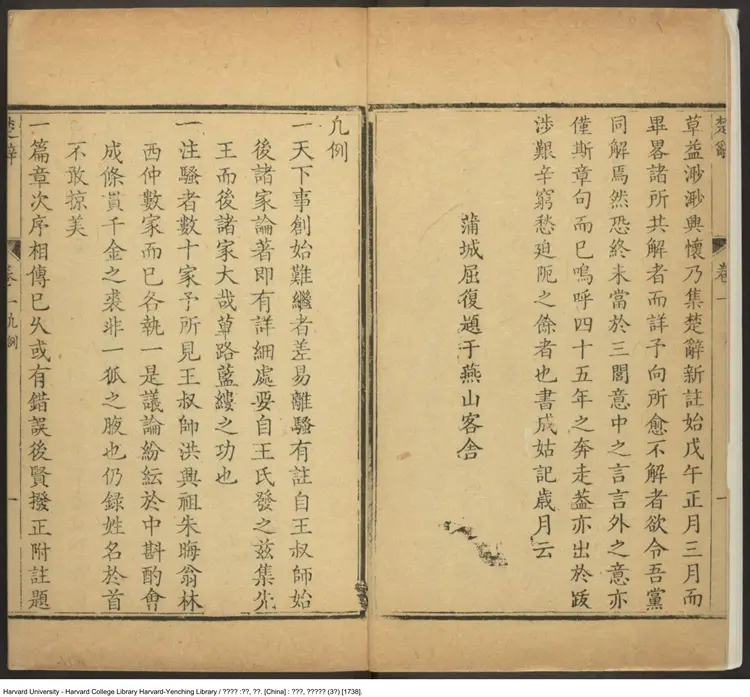 楚辭
卷一
一
草益渺渺興懷乃集楚辭新註始戊午正月三月而
畢畧諸所共解者而詳予向所愈不解者欲令吾黨
同解焉然恐終未當於三閭意中之言言外之意亦
僅斯章句而已嗚呼四十五年之奔走葢亦出於跋
涉艱辛窮愁廹阨之餘者也書成姑記歲月云
蒲城屈復題于燕山客舍
凢例
一天下事創始難繼者差易離騷有註自王叔師始
後諸家論著即有詳細處要自王氏發之兹集先
王而後諸家大哉蓽路藍縷之功也
一注騷者數十家予所見王叔師洪興祖朱晦翁林
西仲數家而已各執一是議論紛紜於中斟酌會
成條貫千金之裘非一狐之腋也仍録姓名於首
不敢掠美
一篇章次序相傳已久或有錯誤後賢撥正附註題
楚辭
卷一凢例
一
Harvard University - Harvard College Library Harvard-Yenching Library / ???? :??, ??. [China] : ???, ????? (3?) [1738].